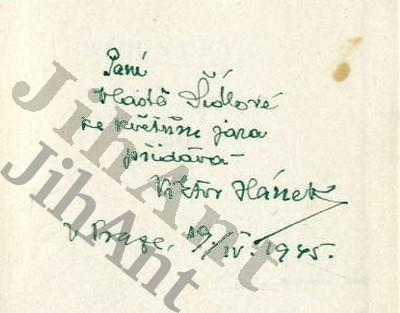 Paní
Vladě Šídlové
ke květům jara
přidává
Viktor Hánek
V Praze, 19/IV. 1945.
JihAnt
JihAnt